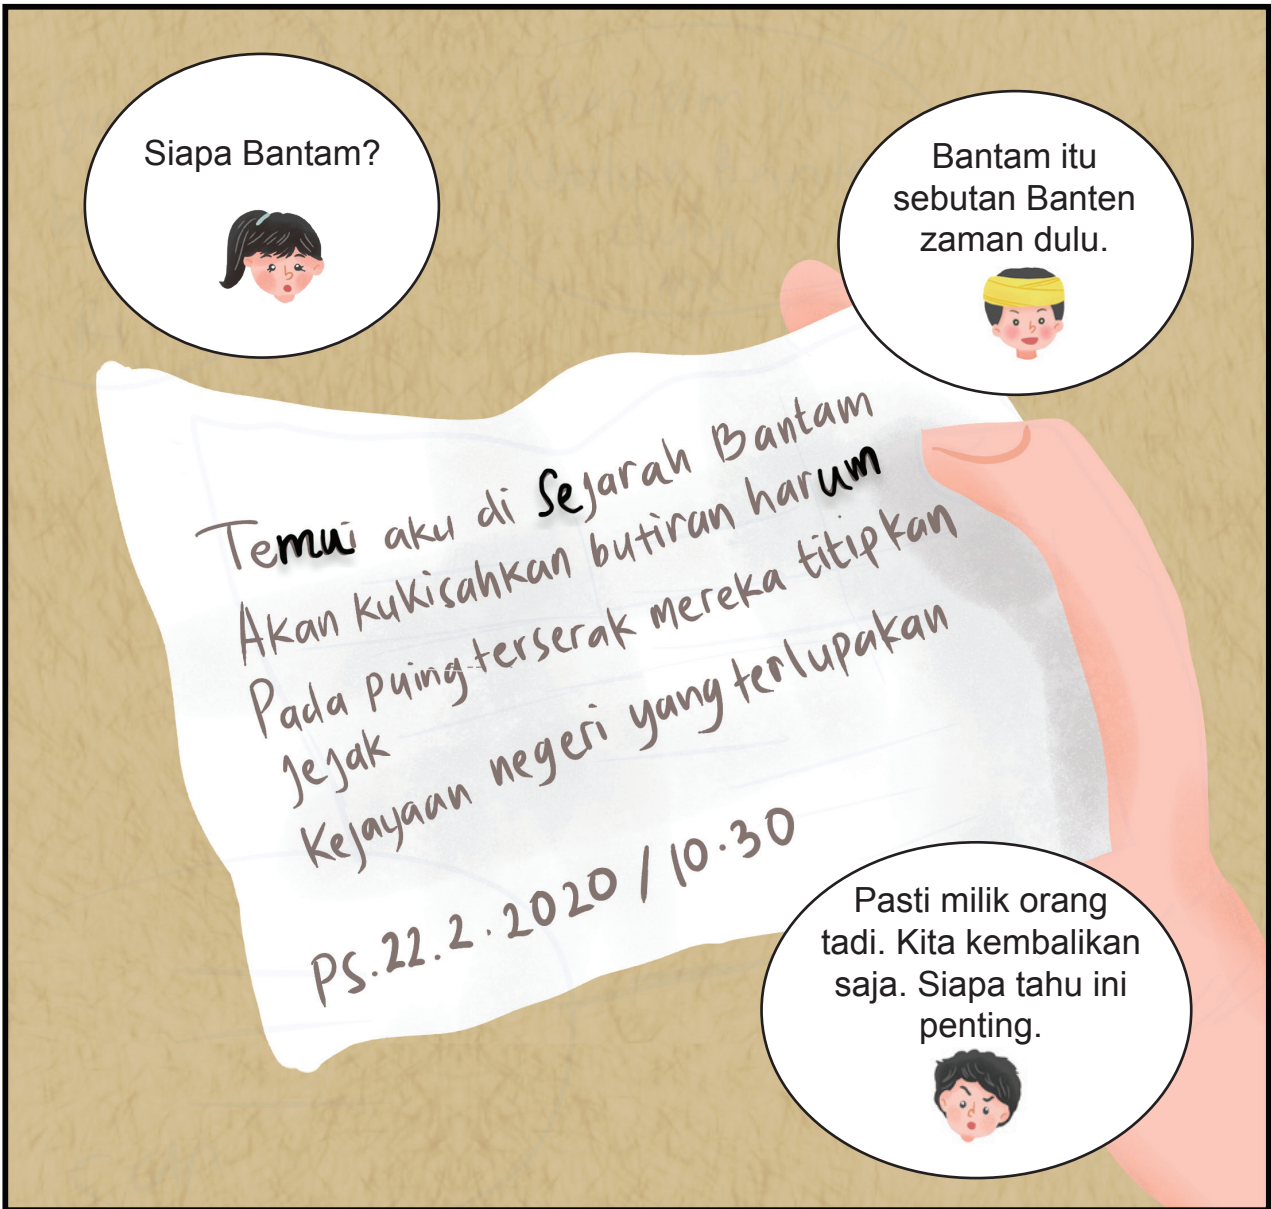 Siapa Bantam?
Bantam itu
sebutan Banten
zaman dulu.
Temui aku di Sejarah Bantam
Akan kukisahkan butiran harum
Pada puing terserak mereka titipkan
Jejak
Kejayaan negeri yang terlupakan
Ps.22.2.2020 / 10.30
Pasti milik orang
tadi. Kita kembalikan
saja. Siapa tahu ini
penting.